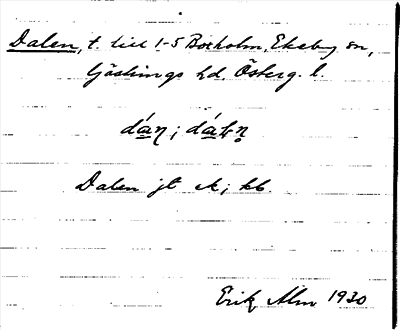 Dalen, t. till 1-5 Boxholm, Ekeby sn,
Göstrings hd Österg. l.
dán; dálṇ
Dalen jt ek; kb.
Erik Alm 1930